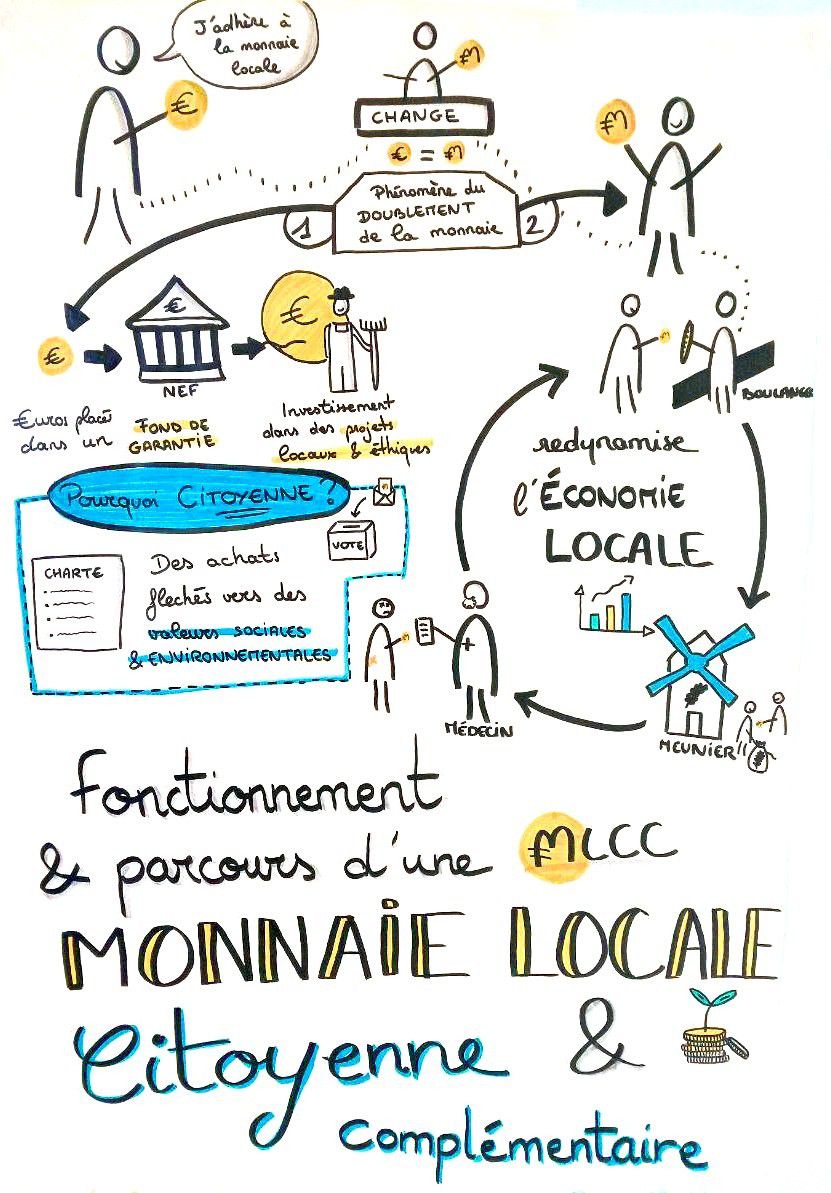 J'adhère à
la monnaie
locale
€
M
CHANGE
€ = M
M
Phénomène du
DOUBLEMENT
de la monnaie
1
2
€
€
€
NEF
€uros placés
dans un
FOND DE
GARANTIE
Investissement
dans des projets
locaux & éthiques
BOULANGER
redynamise
l'ÉCONOMIE
LOCALE
Pourquoi CITOYENNE ?
VOTE
CHARTE
Des achats
flechés vers des
valeurs SOCIALES
& ENVIRONNEMENTALES
MÉDECIN
MEUNIER
fonctionnement
& parcours d'une MLCC
MONNAIE LOCALE
Citoyenne &
complémentaire